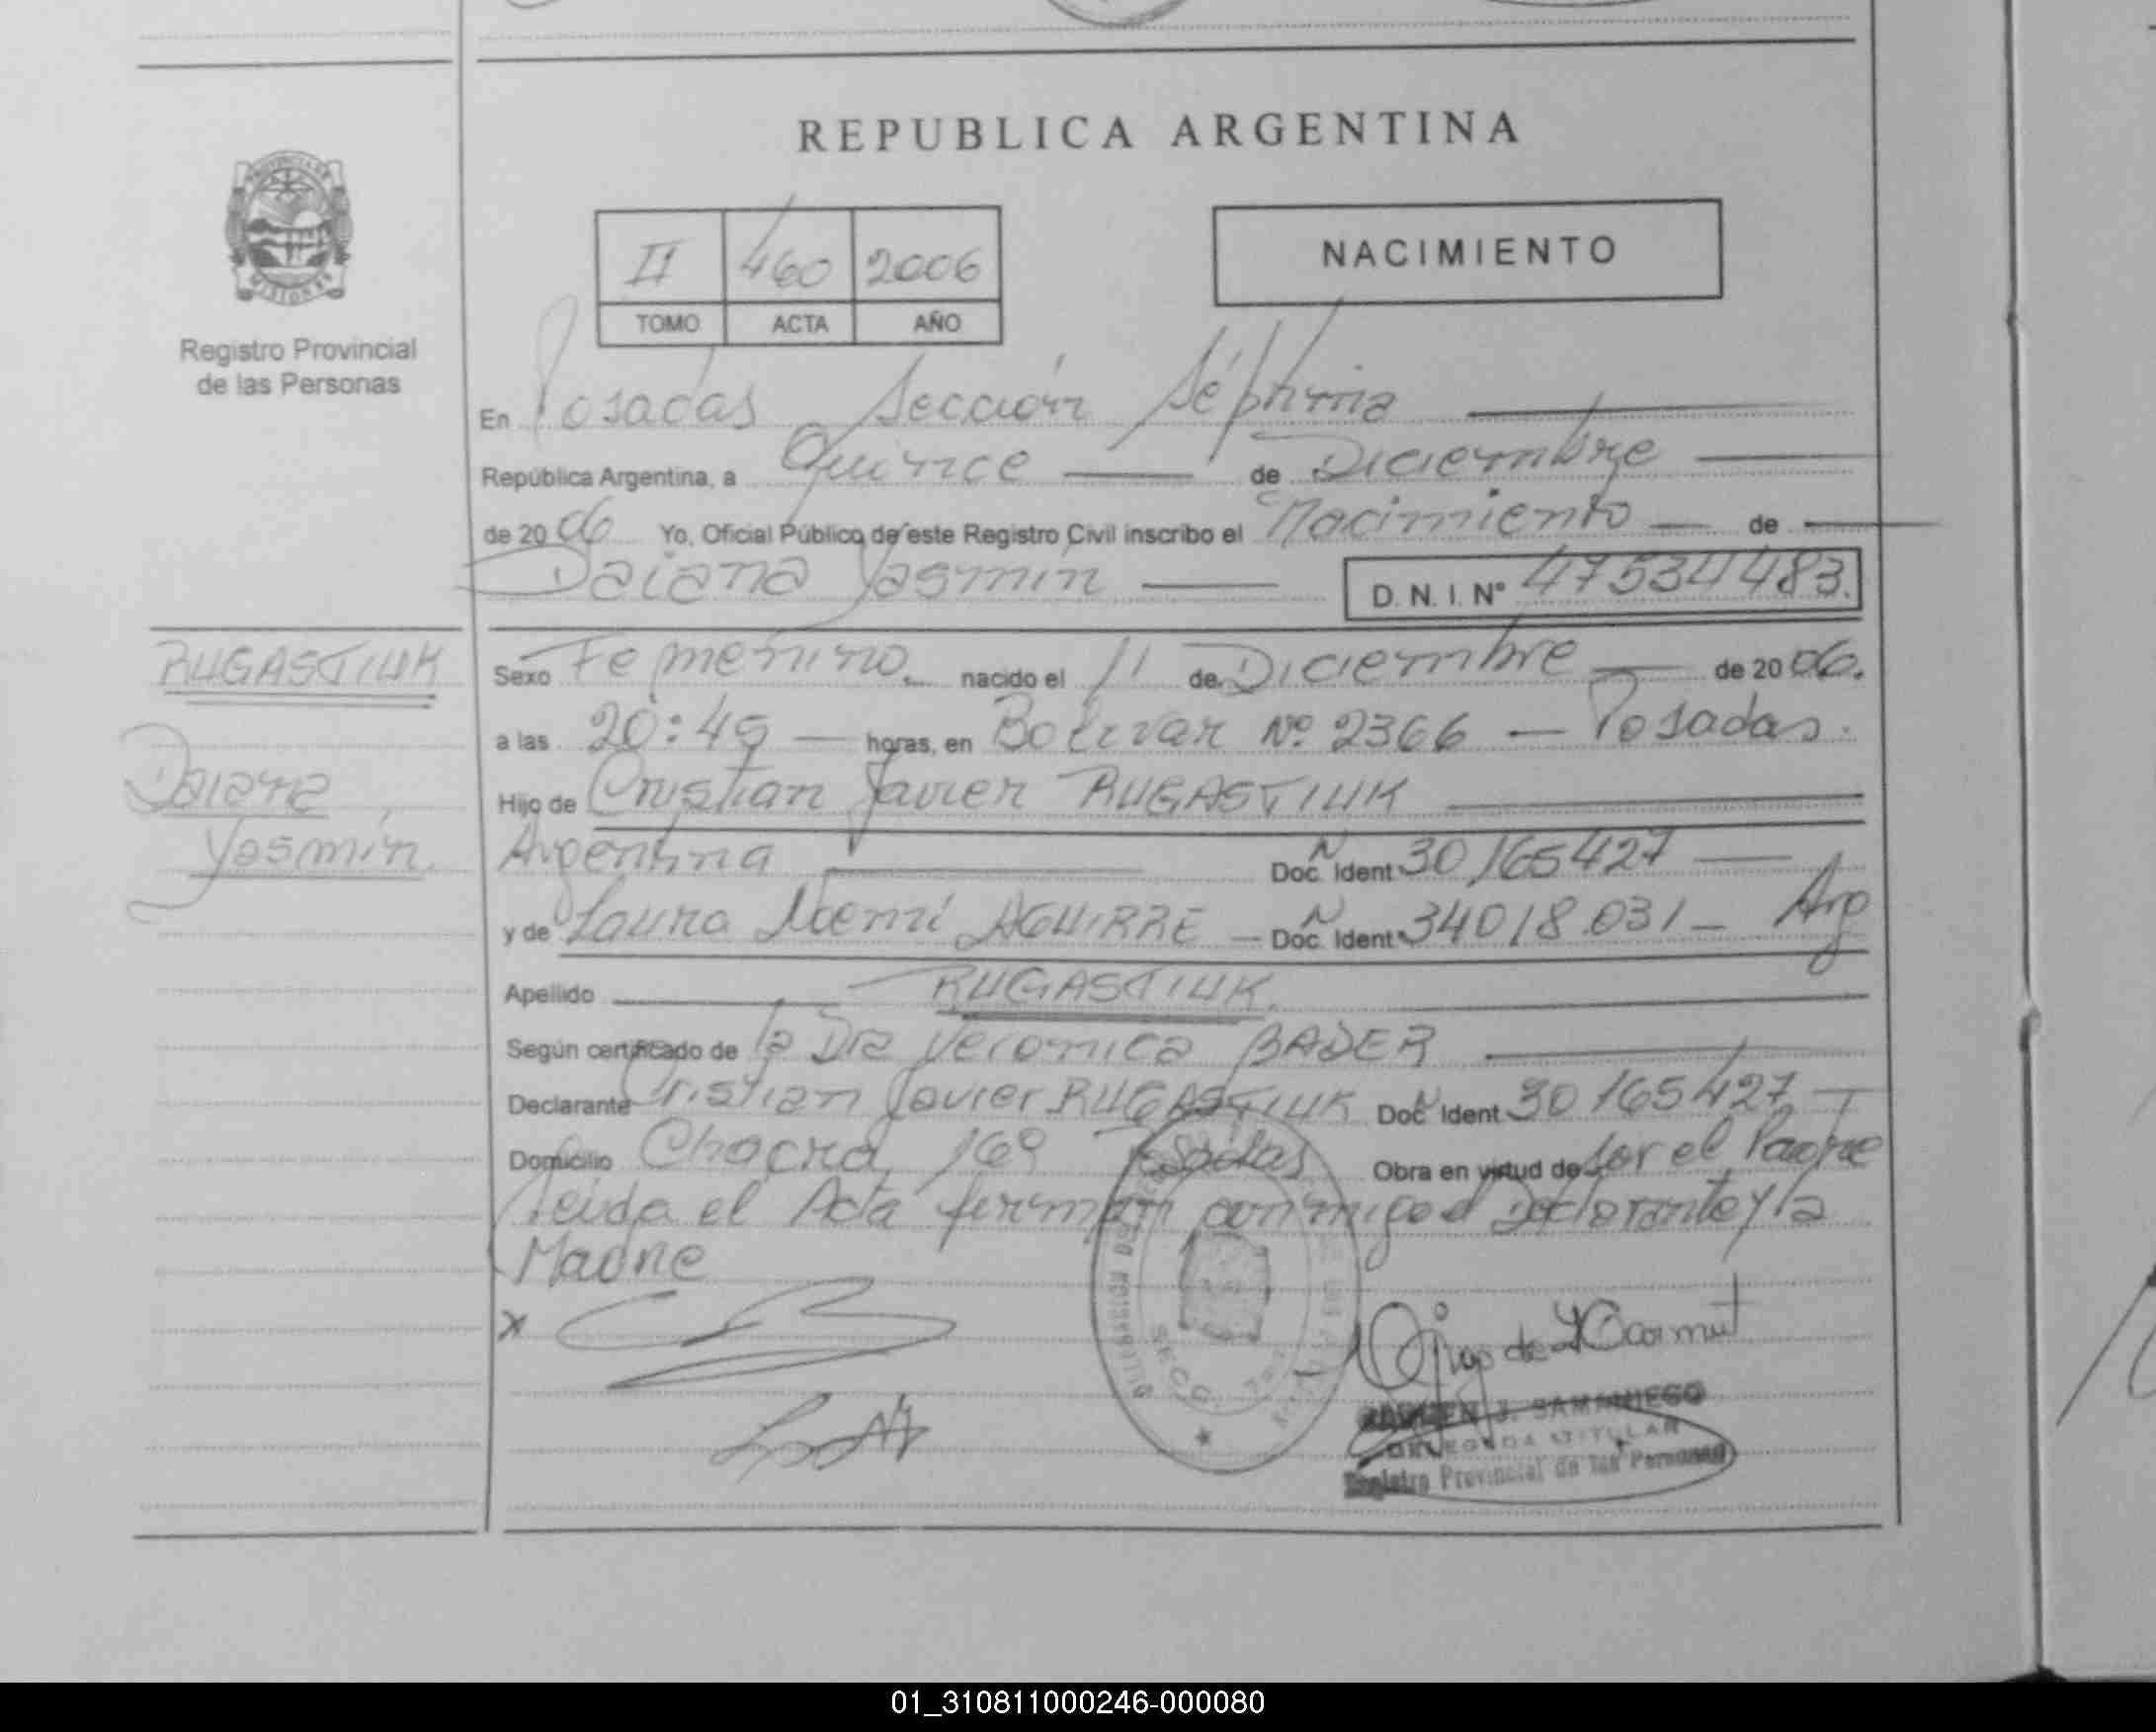 REPUBLICA ARGENTINA
PROVINCIA DE MISIONES
Registro Provincial
de las Personas
II 460 2006
TOMO ACTA AÑO
NACIMIENTO
En Posadas Sección Séptima
República Argentina, a Quince de Diciembre
de 20 06 Yo, Oficial Público de este Registro Civil inscribo el Nacimiento de
Daiana Yasmin D.N.I. Nº 47534483.
RUGASTIUK
Daiana
Yasmín.
Sexo Femenino. nacido el 11 de Diciembre de 20 06.
a las 20:45 horas, en Bolivar Nº 2366 — Posadas.
Hijo de Cristian Javier RUGASTIUK
Argentina Doc. Ident. 30165427
y de Laura Noemí AGUIRRE — Doc. Ident. 34018.031 — Arg
Apellido RUGASTIUK.
Según certificado de la Dra Veronica BADER
Declarante Cristian Javier RUGASTIUK Doc. Ident. 30165427
Domicilio Chacra 169 Posadas Obra en virtud de Ser el Padre
Leida el Acta firman conmigo el Declarante y la
Madre
X
SAMANIEGO
DELEGADA TITULAR
Registro Provincial de las Personas
01_310811000246-000080